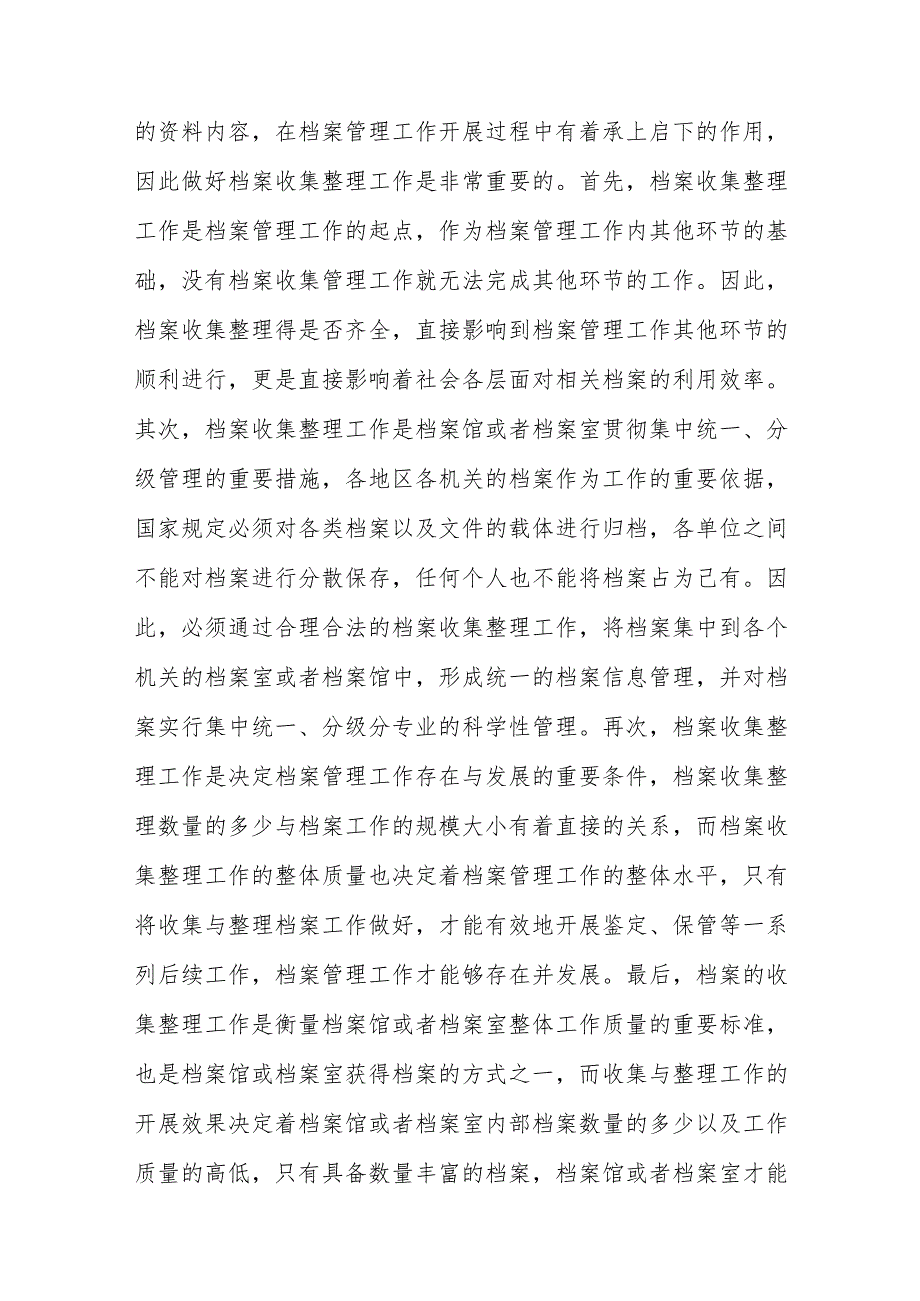 的资料内容，在档案管理工作开展过程中有着承上启下的作用，
因此做好档案收集整理工作是非常重要的。首先，档案收集整理
工作是档案管理工作的起点，作为档案管理工作内其他环节的基
础，没有档案收集管理工作就无法完成其他环节的工作。因此，
档案收集整理得是否齐全，直接影响到档案管理工作其他环节的
顺利进行，更是直接影响着社会各层面对相关档案的利用效率。
其次，档案收集整理工作是档案馆或者档案室贯彻集中统一、分
级管理的重要措施，各地区各机关的档案作为工作的重要依据，
国家规定必须对各类档案以及文件的载体进行归档，各单位之间
不能对档案进行分散保存，任何个人也不能将档案占为己有。因
此，必须通过合理合法的档案收集整理工作，将档案集中到各个
机关的档案室或者档案馆中，形成统一的档案信息管理，并对档
案实行集中统一、分级分专业的科学性管理。再次，档案收集整
理工作是决定档案管理工作存在与发展的重要条件，档案收集整
理数量的多少与档案工作的规模大小有着直接的关系，而档案收
集整理工作的整体质量也决定着档案管理工作的整体水平，只有
将收集与整理档案工作做好，才能有效地开展鉴定、保管等一系
列后续工作，档案管理工作才能够存在并发展。最后，档案的收
集整理工作是衡量档案馆或者档案室整体工作质量的重要标准，
也是档案馆或档案室获得档案的方式之一，而收集与整理工作的
开展效果决定着档案馆或者档案室内部档案数量的多少以及工作
质量的高低，只有具备数量丰富的档案，档案馆或者档案室才能